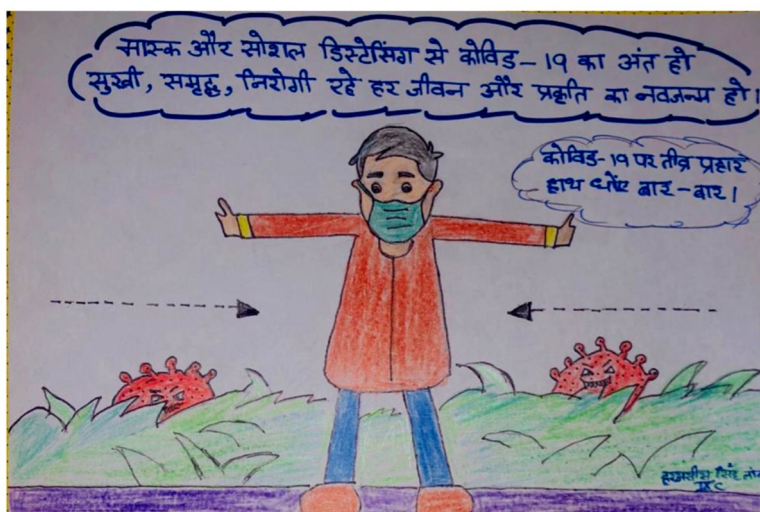 मास्क और सोशल डिस्टेसिंग से कोविड-19 का अंत हो
सुखी, समृद्ध, निरोगी रहे हर जीवन और प्रकृति का नवजन्म हो।
कोविड-19 पर तीव्र प्रहार
हाथ धोंए बार-बार।
सिंह
IX C